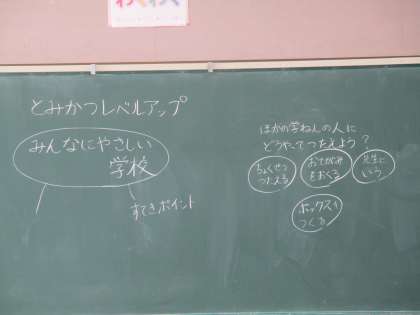 わくわく
とみかつレベルアップ
みんなにやさしい
学校
すてきポイント
ほかの学ねんの人に
どうやってつたえよう？
ちょくせつ
つたえる
おてがみ
をおくる
先生に
いう
ボックスを
つくる